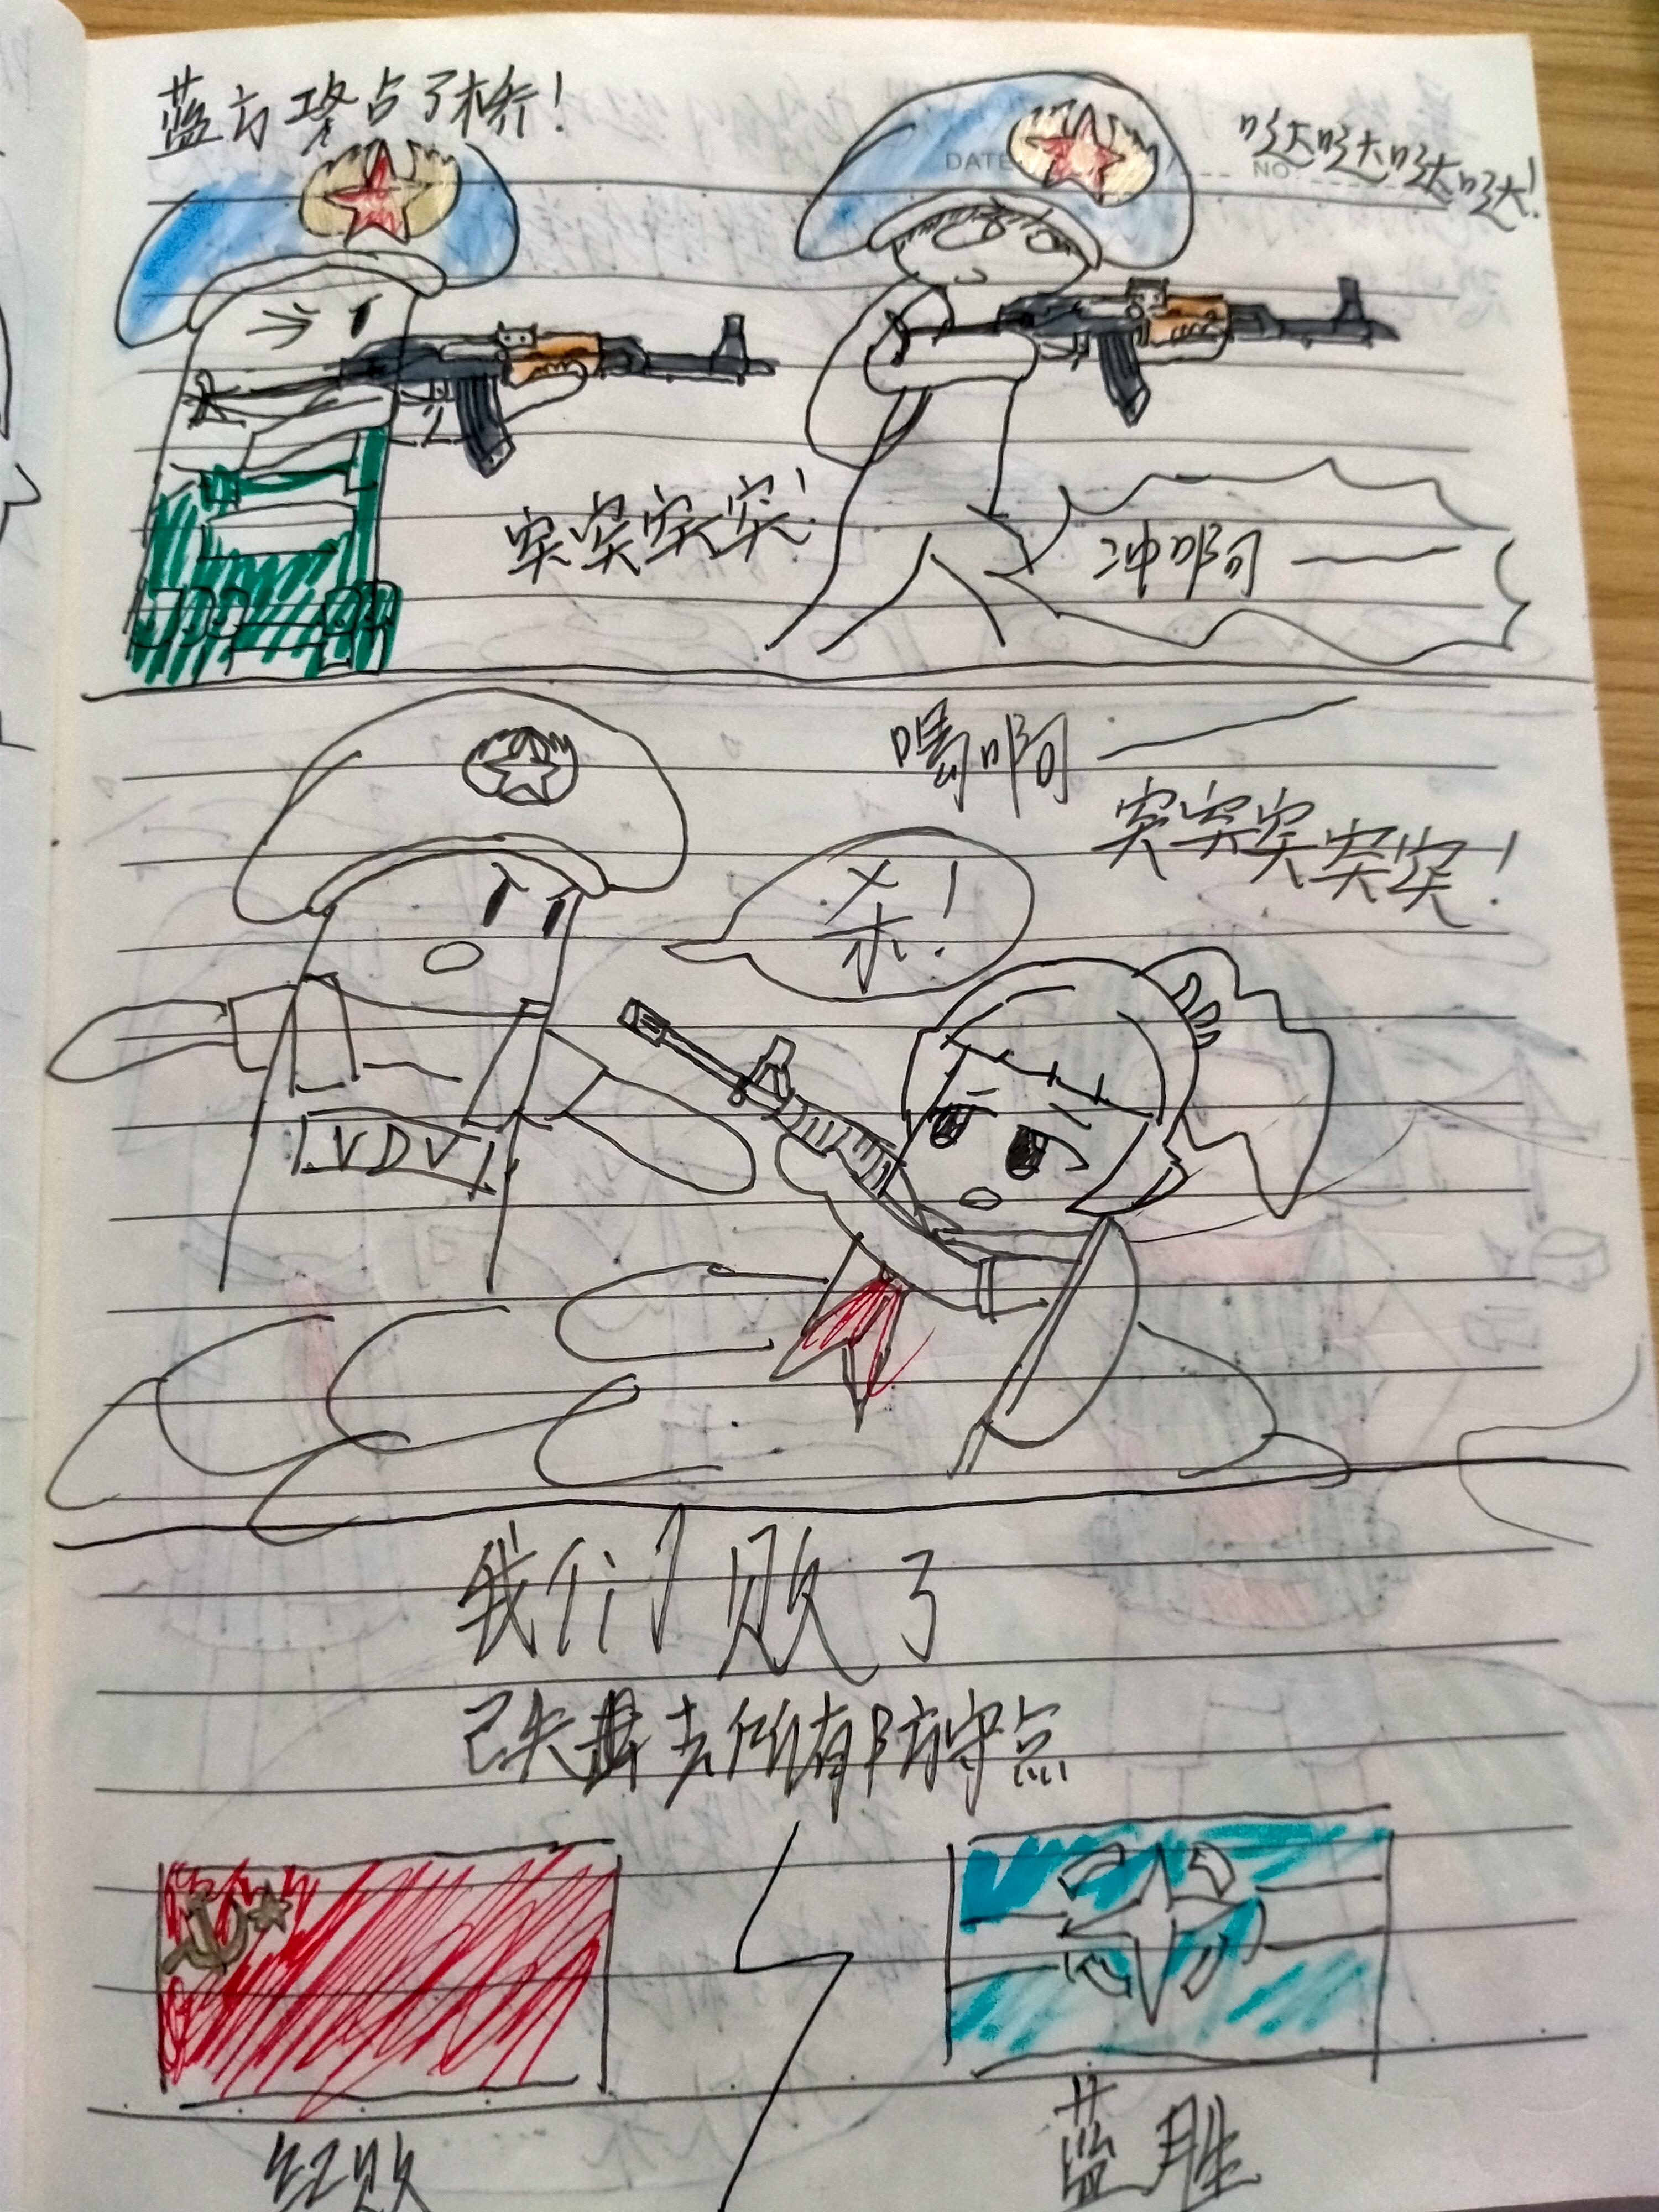 蓝方攻占了桥!
DATE
NO.
哒哒哒哒!
突突突突!
冲啊——
啊——
突突突突突!
杀!
VDV
我们败了
已失去所有防守点
红败
蓝胜